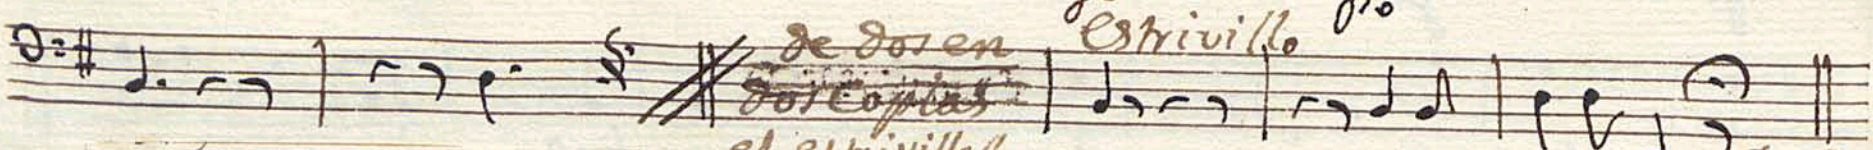 de dos en
dos coplas
el estrivillo
Estrivillo